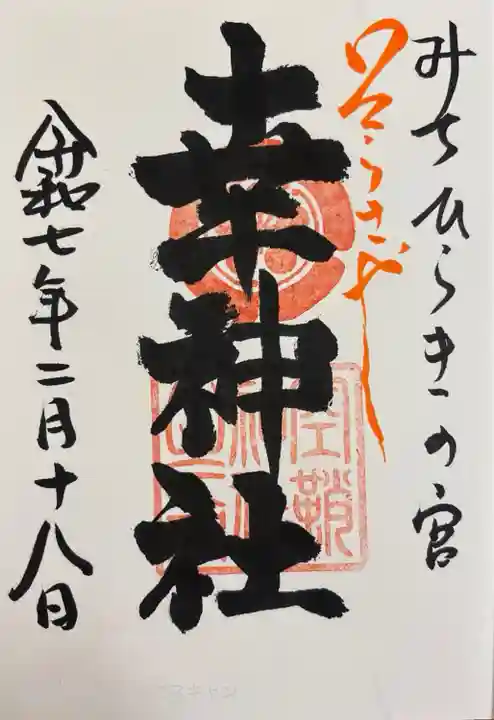 みちひらきの宮
幸神社
空鞘
令和七年二月十八日